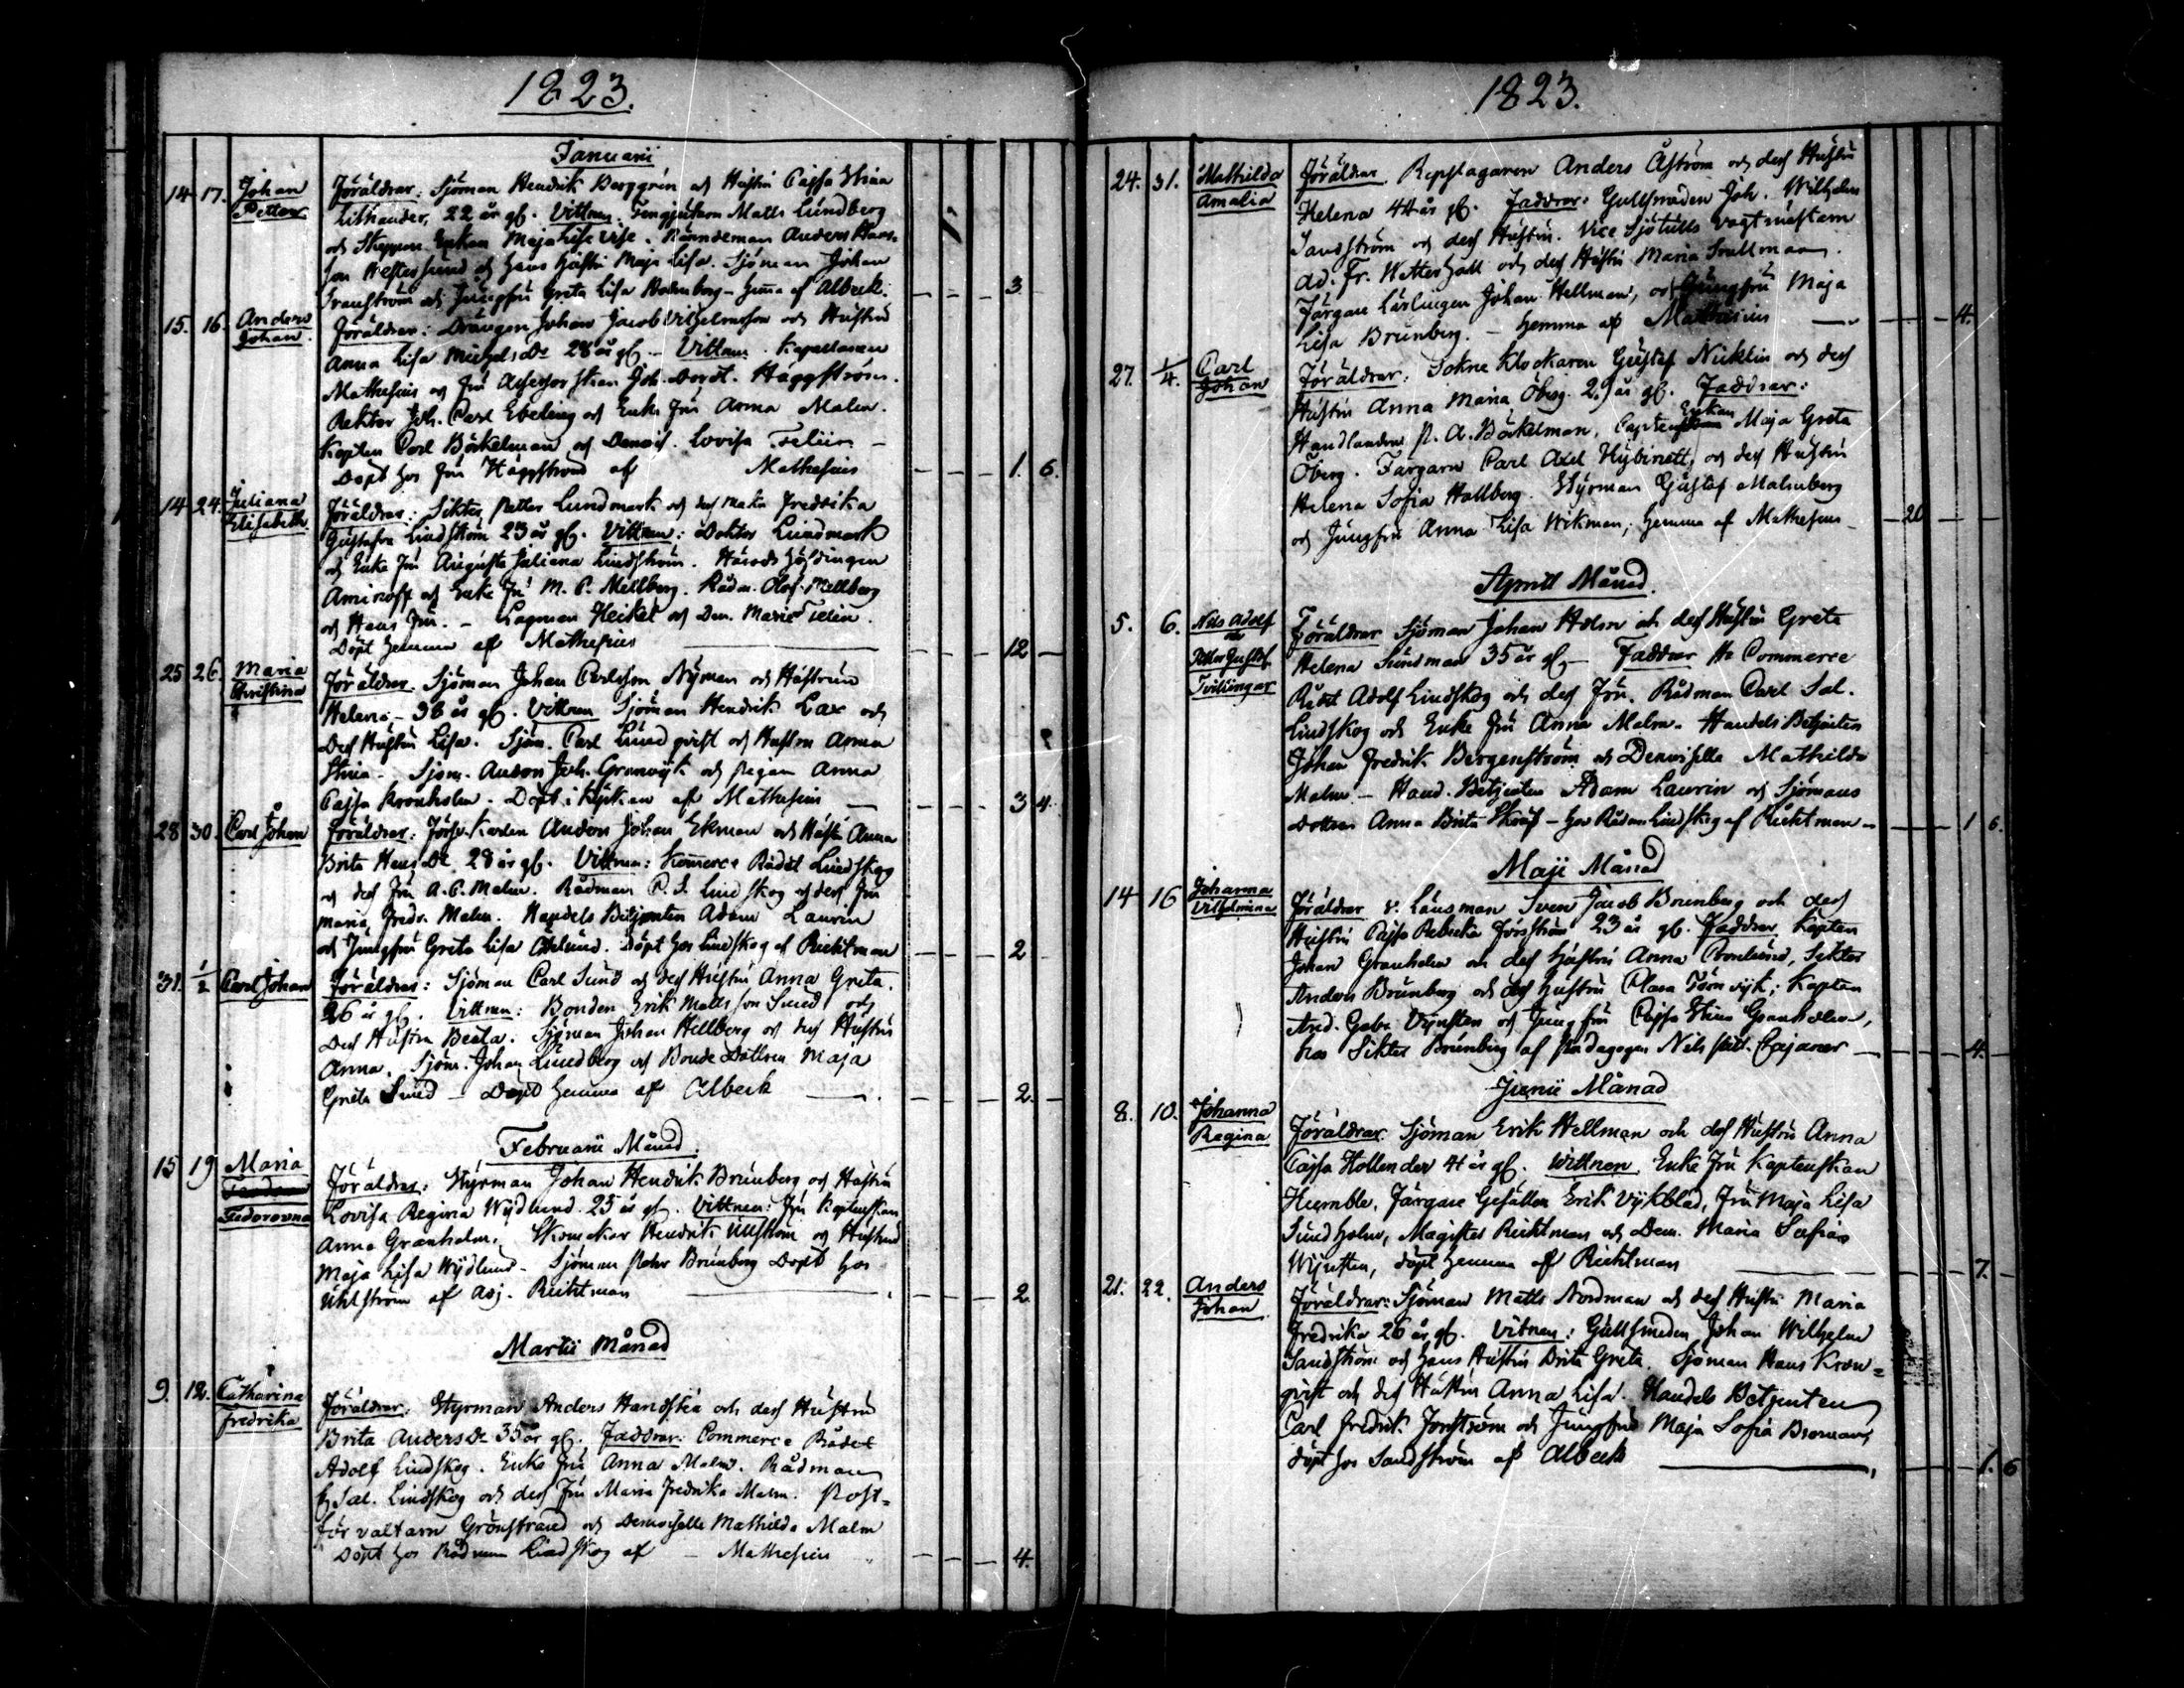 1823.
Januarii
14 17. Johan Petter
Föräldrar: Sjöman Hendrik Berggrén och Hustru Cajsa Stina
Lithander, 22 år gl. Vittnen. Tenngjutaren Matts Lundberg
och Skeppare Enkan Maja Lisa . Rånndeman Anders
son Westersund och hans Hustru Maja Lisa. Sjöman Johan
och Jungfru Greta Lisa Holmberg – hemma af Albeck.
3
15. 16. Anders Johan.
Föräldrar: Drängen Johan Jacob Vilhelmsson och Hustru
Anna Lisa Michels Dr 28 år gl. – Vittnen. Kapellanen
Mathesius och Fru Assessorskan Joh. Dorot. Häggström.
Rektor Joh. Carl Ebeling och Enke Fru Anna Malm.
Kapten Carl Böckelman och Demois. Lovisa Telin –
Döpt hos Fru Häggström af Mathesius
1. 6.
14 24. Juliana Elisabeth.
Föräldrar: Petter Lundmark och des Maka Fredrika
Gustafva Lindström 23 år gl. Vittnen: Doktor Lundmark
och Enke Fru Augusta Juliana Lindström. Härads Höfdingen
Aminoff och Enke Fr M. C. Mellberg. Rådm. Olof Mellberg
och Hans Fru. – Lagman Heikel och Dem. Maria Telin.
Döpt hemma af Mathesius
12 –
25 26. Maria Christina
Föräldrar. Sjöman Johan Carlsson Nyman och Hustrun
Helena – 38 år gl. Vittnen Sjöman Hendrik Lax och
Des Hustru Lisa. Sjöm. Carl Lundqvist och Hustru Anna
Stina – Sjöm. Anders Joh. Granvijk och Pigan Anna
Cajsa Kronholm. Döpt i Kyrkan af Mathesius
3 4
28 30. Carl Johan
Föräldrar: Anders Johan Ekman och Hustr Anna
Brita Hans Dr 28 år gl. Vittnen: Kommerce Rådet Lindskog
och des Fru A. C. Malm. Rådman C. S. Lindskog och des Fru
Maria Fredr. Malm. Handels Betjenten Adam Laurin
och Jungfru Greta Lisa Åhlund. Döpt hos Lindskog af Rickman
2
31. 1/2 Carl Johan
Föräldrar: Sjöman Carl Sund och des Hustru Anna Greta.
26 år gl. Vittnen: Bonden Erik Matts son Sund och
Des Hustru Beata. Sjöman Johan Hellberg och des Hustru
Anna. Sjöm. Johan Lundberg och Bonde Dottren Maja
Greta Sund – Döpt hemma af Albeck
2. –
Februarii Månad.
15 19 Maria Fedorovna
Föräldrar: Styrman Johan Hendrik Brunberg och Hustru
Lovisa Regina Wydlund. 25 år gl. Vittnen: Fru Kaptenskan
Anna Granholm. Skomakar Hendrik Uhlström och Hustrun
Maja Lisa Wydlund – Sjöman Petter Brunberg Döpt hos
Uhlström af Adj. Rickman
2
Martii Månad
9. 12. Catharina Fredrika
Föräldrar: Styrman Anders Handskia och dess Hustru
Brita Anders Dr 35 år gl. Faddrar: Commerce Rådet
Adolf Lindskog. Enke Fru Anna Malm. Rådman
C. Sal. Lindskog och dess Fru Maria Fredrika Malm. Post=
förvaltarn Grönstrand och Demoiselle Mathilda Malm
Döpt hos Rådman Lindskog af – Mathesius
4.
1823.
24. 31. Mathilda Amalia
Föräldrar Repslagaren Anders Åström och dess Hustru
Helena 44 år gl. Faddrar: Gullsmeden Joh. Wilhelm
Sandström och dess Hustru. Vice Sjötulls Vagtmästarn
Ad. Fr. Wetterhall och dess Hustru Maria Snellman.
Färgare Lärlingen Johan Hellman, och Jungfru Maja
Lisa Brunberg. – hemma af Mathesius
4.
27. 1/4. Carl Johan
Föräldrar: Sokne Klockaren Gustaf Nicklin och dess
Hustru Anna Maria Öberg 29 år gl. Faddrar:
Handlanden P. A. Böckelman, Captens Enkan Maja Greta
Öberg. Färgarn Carl Axel Hybinett, och dess Hustru
Helena Sofia Hallberg. Styrman Gustaf Malmberg
och Jungfru Anna Lisa Wikman; hemma af Mathesius –
20
Aprill Månad.
5. 6. Nils Adolf och Petter Gustaf Tvillingar
Föräldrar Sjöman Johan Holm och dess Hustru Greta
Helena Sundman 35 år gl – Faddrar Hr Commerce
Rådet Adolf Lindskog och dess Fru. Rådman Carl Sal.
Lindskog och Enke Fru Anna Malm. Handels Betjenten
Johan Fredrik Bergenström och Demoiselle Mathilda
Malm – Hand. Betjenten Adam Laurin och Sjömans
Dottren Anna Brita – hos Rådm Lindskog af Rickman –
1 6.
Maji Månad
14 16 Johanna Vilhelmina
Föräldrar v. Länsman Sven Jacob Brunberg och dess
Hustru Cajsa Rebecka Forsström 23 år gl. Faddrar Kapten
Johan Granholm och dess Hustru Anna Cronlund,
Anders Brunberg och dess Hustru Clara Törnvijk; Kapten
And. Gabr. Wijnsten och Jungfru Cajsa Stina Granholm,
hos Brunberg af Pædagogen Nils Cajaner
4. –
Junii Månad
8. 10. Johanna Regina
Föräldrar. Sjöman Erik Hellman och des Hustru Anna
Cajsa Hollender 41 år gl. Wittnen Enke Fru Kaptenskan
Humble. Färgare Gesällen Erik Vykblad, Fru Maja Lisa
Sundholm, Magister Rickman och Dem. Maria Sofia
Wijnsten, döpt hemma af Rickman
7. –
21. 22. Anders Johan
Föräldrar: Sjöman Matts Nordman och dess Hustru Maria
Fredrika 26 år gl. Vitnen: Gullsmeden Johan Wilhelm
Sandström och hans Hustru Brita Greta. Sjöman Hans Kron=
qvist och des Hustru Anna Lisa. Handels Betjenten
Carl Fredrik Forsström och Jungfrun Maja Sofia Broman,
döpt hos Sandström af Albeck
1. 6